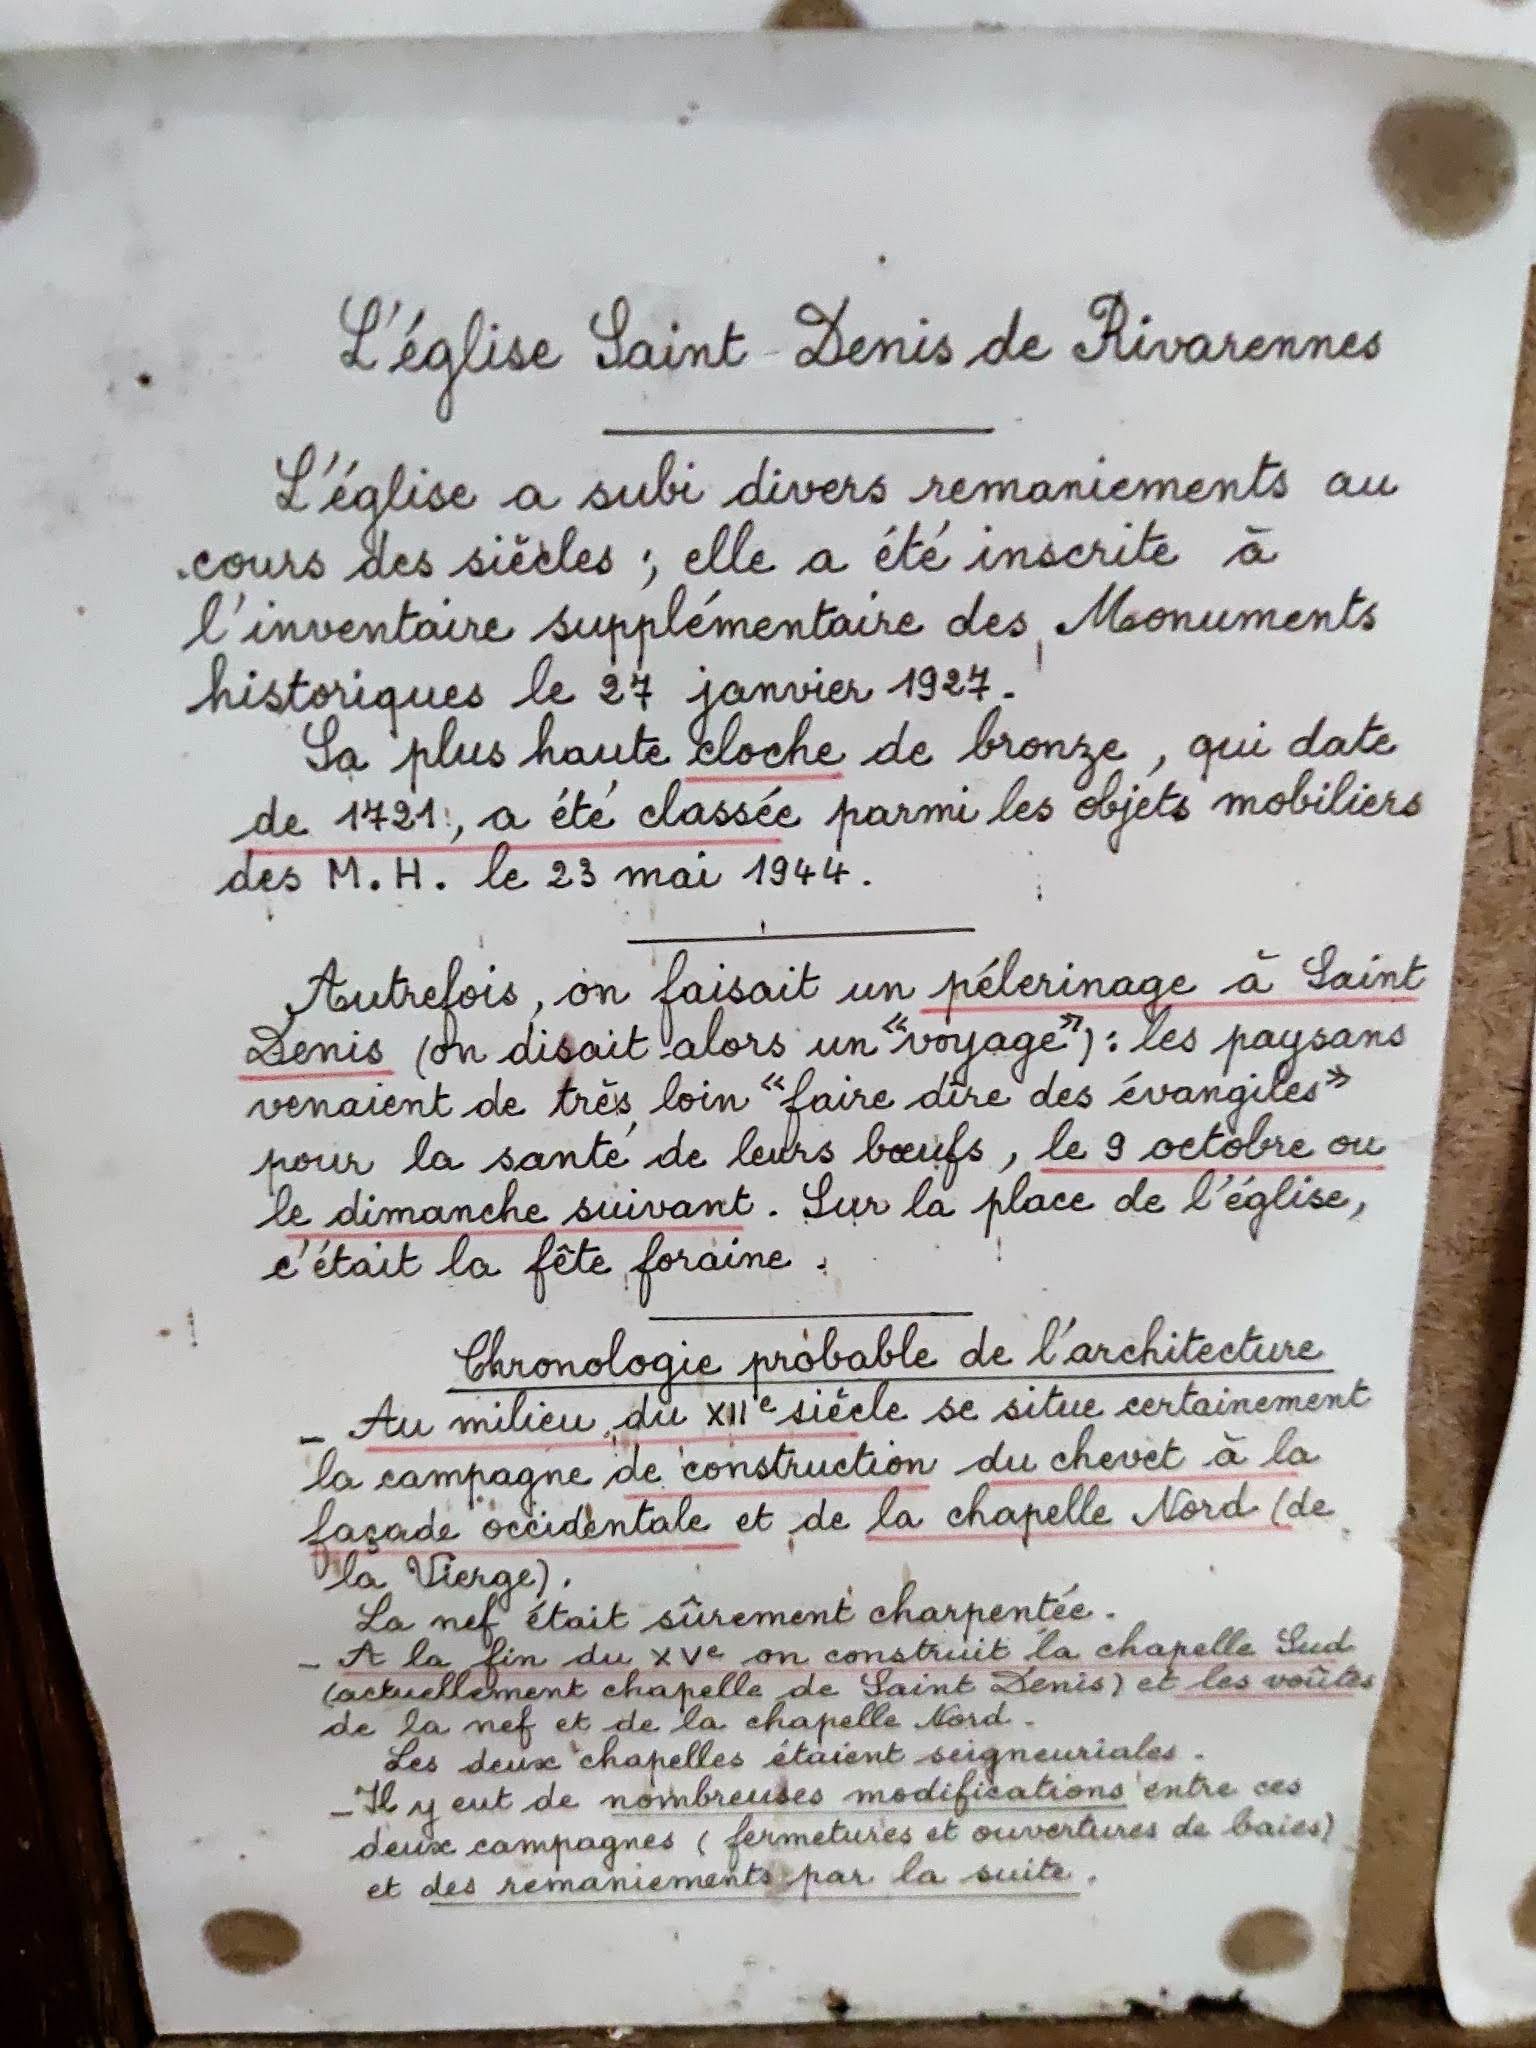 L'église Saint-Denis de Rivarennes
L'église a subi divers remaniements au
cours des siècles ; elle a été inscrite à
l'inventaire supplémentaire des Monuments
historiques le 27 janvier 1927.
Sa plus haute cloche de bronze, qui date
de 1721, a été classée parmi les objets mobiliers
des M.H. le 23 mai 1944.
Autrefois, on faisait un pélerinage à Saint
Denis (on disait alors un «voyage») : les paysans
venaient de très loin «faire dire des évangiles»
pour la santé de leurs bœufs, le 9 octobre ou
le dimanche suivant. Sur la place de l'église,
c'était la fête foraine.
Chronologie probable de l'architecture
- Au milieu du XIIe siècle se situe certainement
la campagne de construction du chevet à la
façade occidentale et de la chapelle Nord (de
la Vierge).
La nef était sûrement charpentée.
- A la fin du XVe on construit la chapelle Sud
(actuellement chapelle de Saint Denis) et les voûtes
de la nef et de la chapelle Nord.
Les deux chapelles étaient seigneuriales.
- Il y eut de nombreuses modifications entre ces
deux campagnes (fermetures et ouvertures de baies)
et des remaniements par la suite.